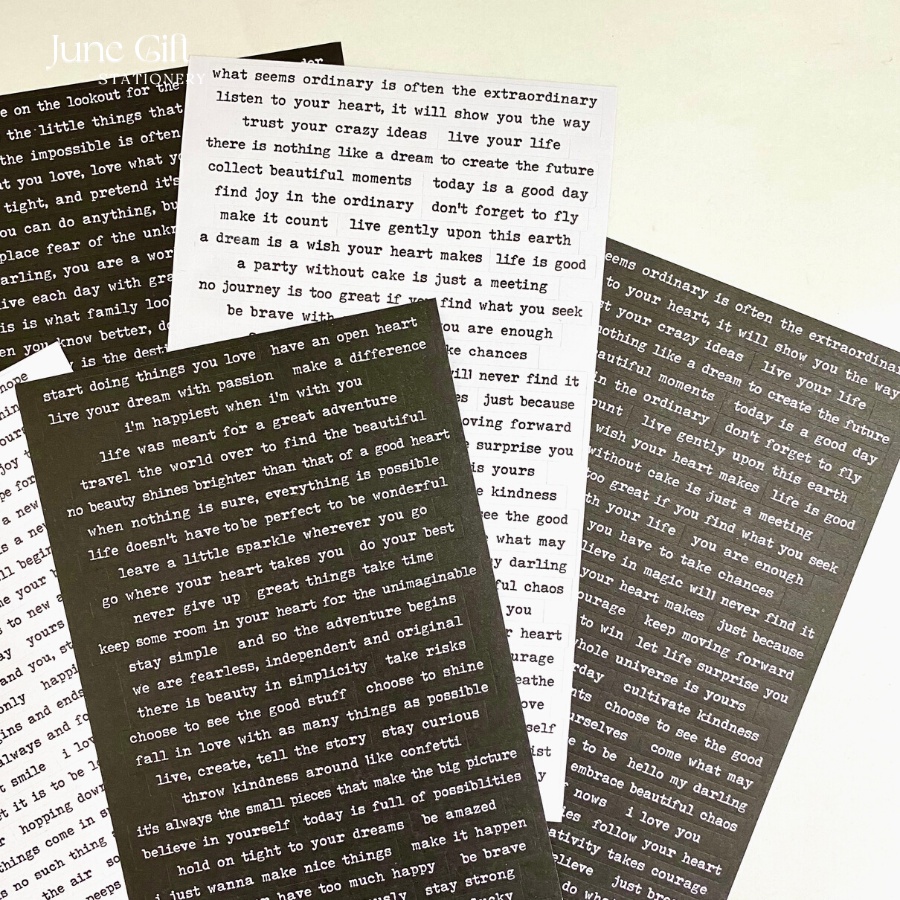 June Gift
STATIONERY
e on the lookout for the
the little things that
the impossible is often
t you love, love what yo
tight, and pretend it's
ou can do anything, bu
place fear of the unkn
arling, you are a wor
ive each day with gra
is is what family loo
en you know better, do
is the desti
what seems ordinary is often the extraordinary
listen to your heart, it will show you the way
trust your crazy ideas live your life
there is nothing like a dream to create the future
collect beautiful moments today is a good day
find joy in the ordinary don't forget to fly
make it count live gently upon this earth
a dream is a wish your heart makes life is good
a party without cake is just a meeting
no journey is too great if you find what you seek
be brave with you are enough
ke chances
ill never find it
es just because
oving forward
surprise you
is yours
kindness
see the good
what may
y darling
ful chaos
you
r heart
urage
eathe
ove
self
ist
y
start doing things you love have an open heart
live your dream with passion make a difference
i'm happiest when i'm with you
life was meant for a great adventure
travel the world over to find the beautiful
no beauty shines brighter than that of a good heart
when nothing is sure, everything is possible
life doesn't have to be perfect to be wonderful
leave a little sparkle wherever you go
go where your heart takes you do your best
never give up great things take time
keep some room in your heart for the unimaginable
stay simple and so the adventure begins
we are fearless, independent and original
there is beauty in simplicity take risks
choose to see the good stuff choose to shine
fall in love with as many things as possible
live, create, tell the story stay curious
throw kindness around like confetti
it's always the small pieces that make the big picture
believe in yourself today is full of possiblities
hold on tight to your dreams be amazed
i just wanna make nice things make it happen
m have too much happy be brave
usly stay strong
lucky
eems ordinary is often the extraordinar
to your heart, it will show you the way
t your crazy ideas live your life
nothing like a dream to create the future
autiful moments today is a good day
in the ordinary don't forget to fly
ount live gently upon this earth
wish your heart makes life is good
without cake is just a meeting
oo great if you find what you seek
th your life you are enough
you have to take chances
lieve in magic will never find it
your heart makes just because
ourage keep moving forward
to win let life surprise you
whole universe is yours
rday cultivate kindness
nts choose to see the good
urselves come what may
e to be hello my darling
embrace beautiful chaos
nows i love you
ies follow your heart
ativity takes courage
elieve just bre
do wha
hone
joy t
pe for
a new
s a new
ll begin
e your
s to new a
ay yours
and you, st
only happi
gins and ends
always and fo
t smile i lov
t it is to be lo
hopping down
things come in s
s no such thing
the air so
peeps